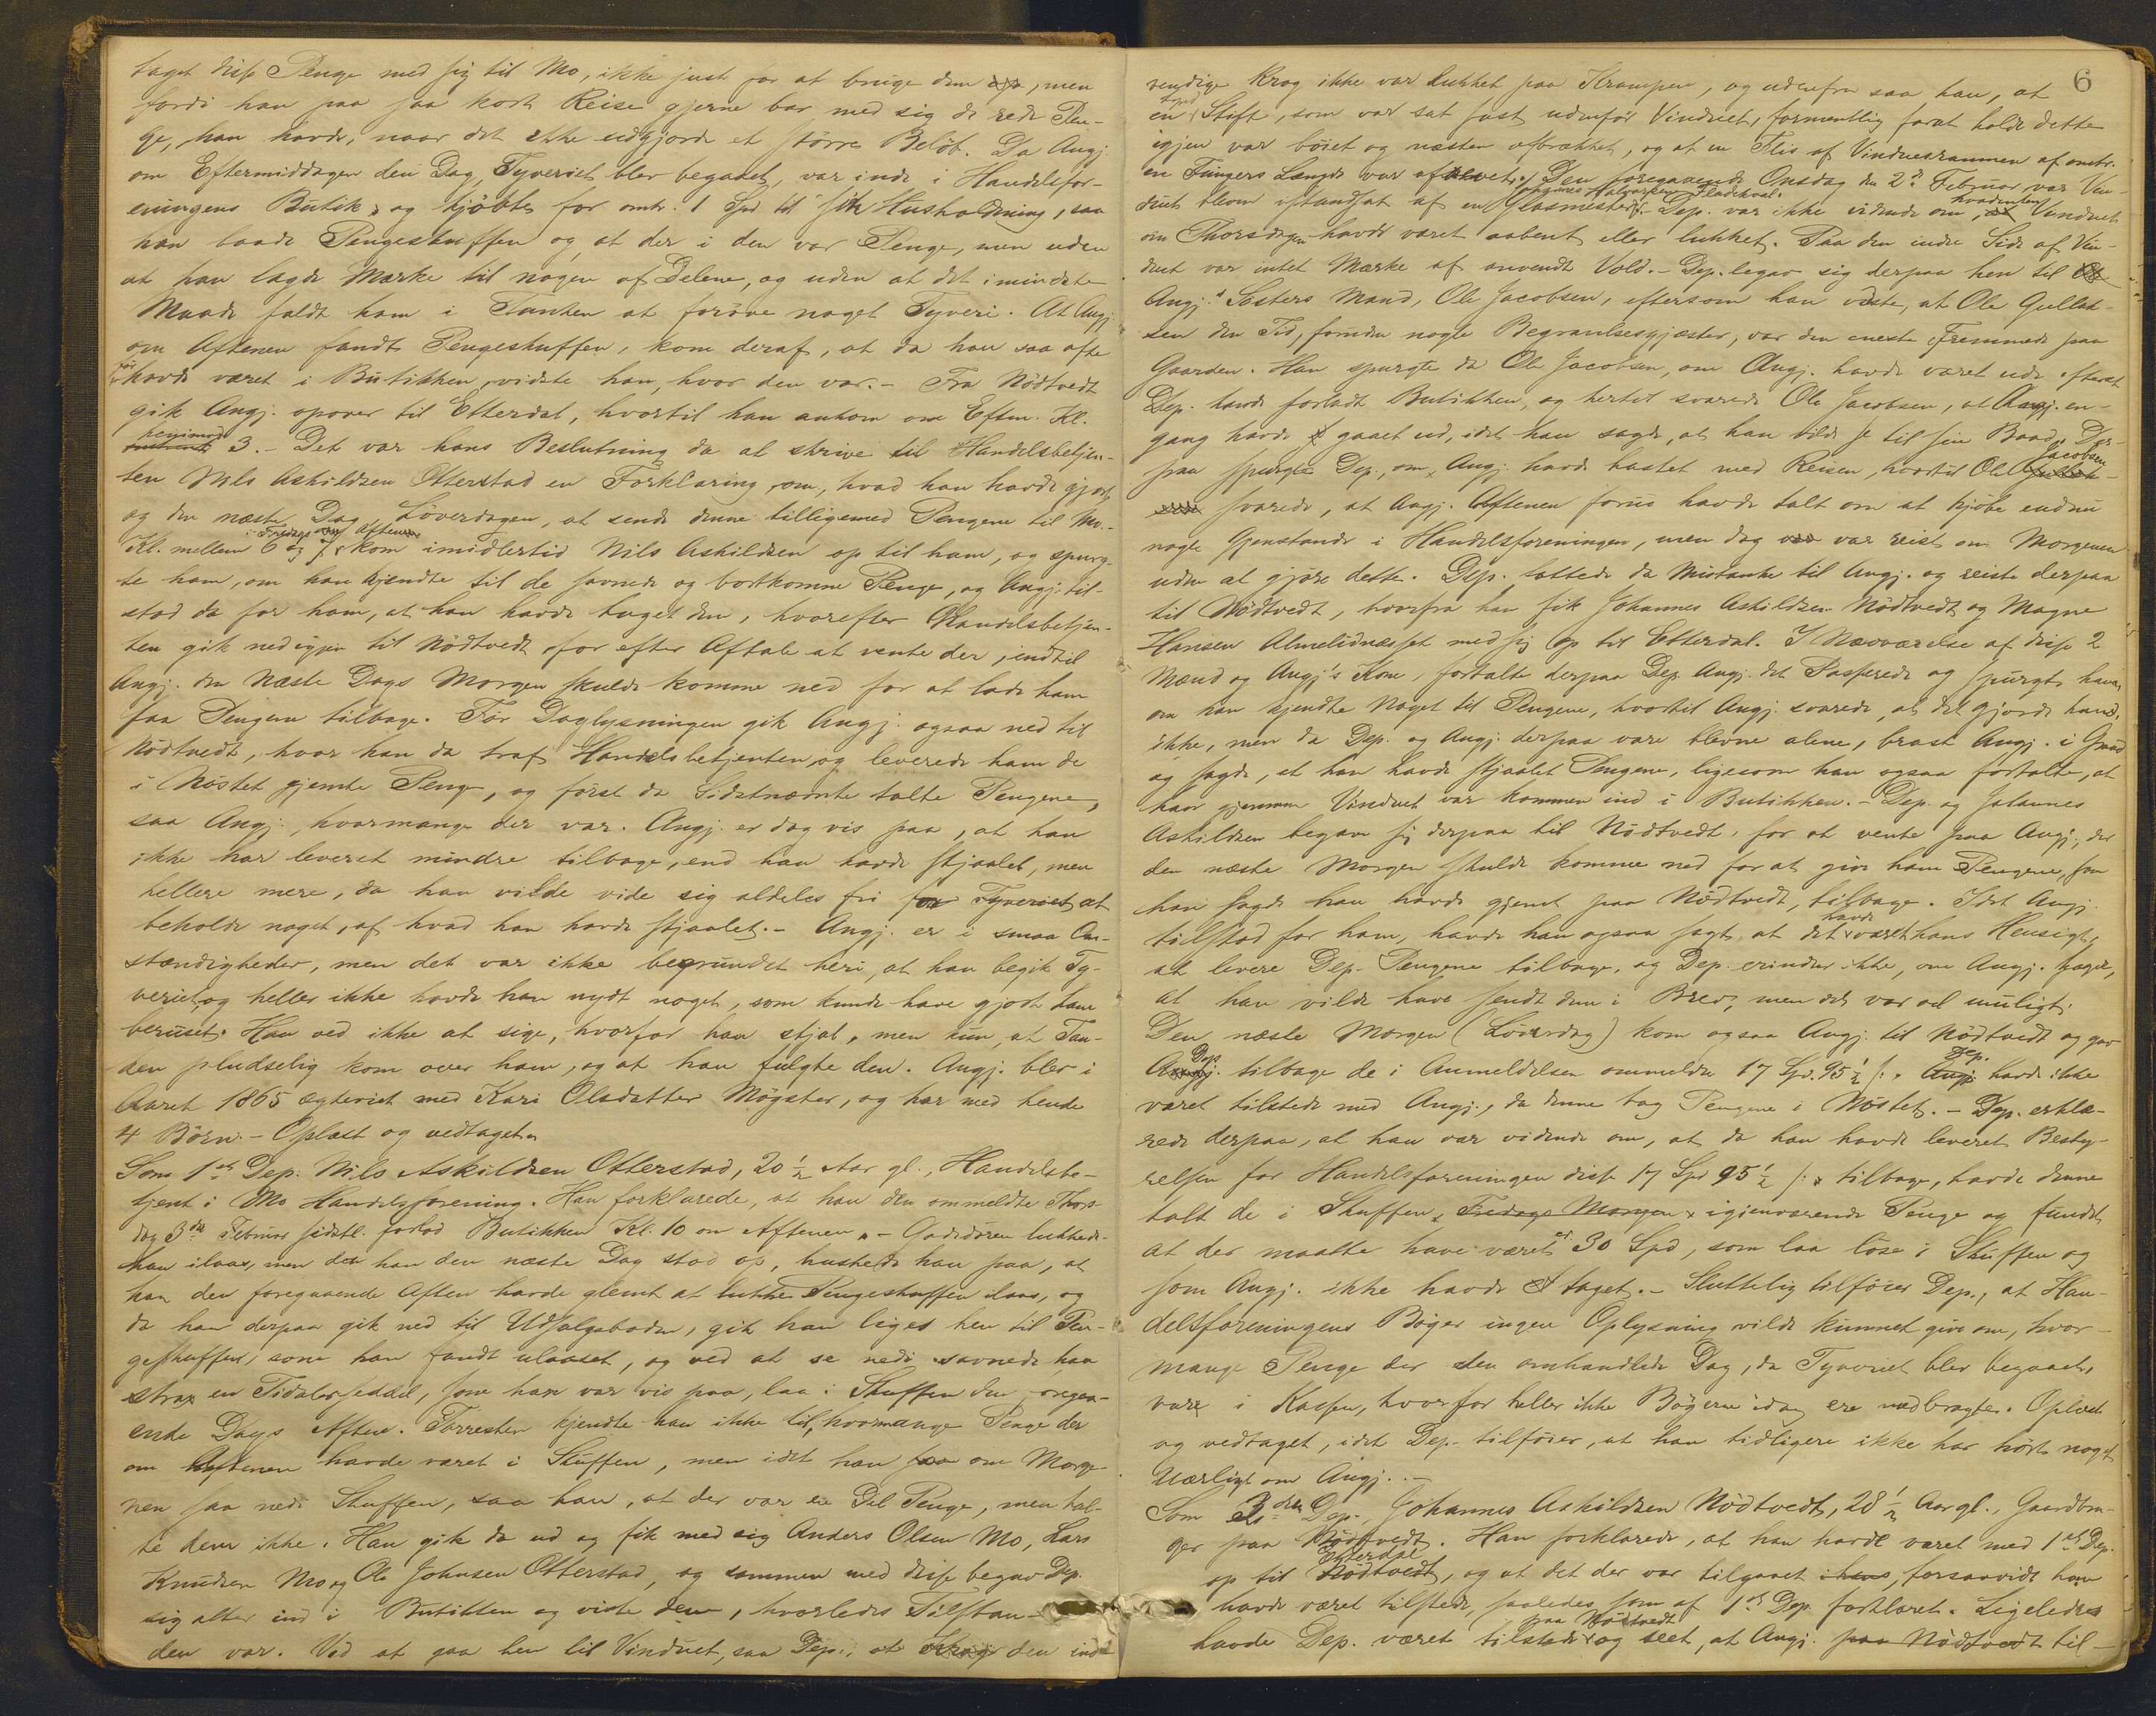 taget disse Penge med sig til Mo, ikke just for at bruge dem, men
fordi han paa saa kort Reise gjerne bar med sig de rede Pen-
ge, han havde, naar det ikke udgjorde et större Belöb. Da Angj.
om Eftermiddagen den Dag, Tyveriet blev begaaet, var inde i Handelsfor-
eningens Butik, og kjöbte for omtr. 1 Spd til sin Husholdning, saa
han baade Pengeskuffen og at der i den var Penge, men uden
at han lagde Mærke til nogen af Delene, og uden at det i mindste
Maade faldt ham i Tanken at foröve noget Tyveri. At Angj.
om Aftenen fandt Pengeskuffen, kom deraf, at da han saa ofte
för havde været i Butikken, vidste han, hvor den var. - Fra Nödtvedt
gik Angj. opover til Etterdal, hvortil han ankom om Efterm. Kl.
henimod 3. - Det var hans Beslutning da at skrive til Handelsbetjen-
ten Nils Askildsen Otterstad en Forklaring om, hvad han havde gjort
og den næste Dag Löverdagen, at sende denne tilligemed Pengene til Mo. -
Kl. mellem 6 og 7 i Fredags Aften kom imidlertid Nils Askildsen op til ham, og spurg-
te ham, om han kjendte til de savnede og bortkomne Penge, og Angj. til-
stod da for ham, at han havde taget dem, hvorefter Handelsbetjen-
ten gik ned igjen til Nödtvedt for efter Aftale at vente der, indtil
Angj. den næste Dags Morgen skulde komme ned for at lade ham
faa Pengene tilbage. Før Daglysningen gik Angj. ogsaa ned til
Nödtvedt, hvor han da traf Handelsbetjenten og leverede ham de
i Nöstet gjemte Penge, og först da Sidstnævnte talte Pengene,
saa Angj. hvormange der var. Angj. er dog vis paa, at han
ikke har leveret mindre tilbage, end han havde stjaalet, men
hellere mere, da han vilde vide sig aldeles fri for Tyveriet at
beholde noget, af hvad han havde stjaalet. - Angj. er i smaa Om-
stændigheder, men det var ikke begrundet heri, at han begik Ty-
veriet, og heller ikke havde han nydt noget, som kunde have gjort ham
beruset. Han ved ikke at sige, hvorfor han stjal, men kun, at Tan-
ken pludselig kom over ham, og at han fulgte den. Angj. blev i
Aaret 1865 ægteviet med Kari Olsdatter Mögster, og har med hende
4 Börn. - Oplæst og vedtaget.
Som 1ste Dep. Nils Askildsen Otterstad, 20 1/2 Aar gl., Handelsbe-
tjent i Mo Handelsforening. Han forklarede, at han den ommeldte Thors-
dag 3die Februar sidstl. forlod Butikken Kl. 10 om Aftenen. - Gadedören lukkede
han ilaas, men da han den næste Dag stod op, huskede han paa, at
han den foregaaende Aften havde glemt at lukke Pengeskuffen ilaas, og
da han derpaa gik ned til Udsalgsboden, gik han liges hen til Pen-
geskuffen, som han fandt ulaaset, og ved at se nedi savnede han
strax en Tidalerseddel, som han var vis paa, laa i Skuffen den foregaa-
ende Dags Aften. Forresten kjendte han ikke til, hvormange Penge der
om Aftenen havde været i Skuffen, men idet han om Morge-
nen saa nedi Skuffen, saa han, at der var en Del Penge, men tal-
te dem ikke. Han gik da ud og fik med sig Anders Olsen Mo, Lars
Knudsen Mo og Ole Johnsen Otterstad, og sammen med disse begav Dep.
sig atter ind i Butikken og viste dem, hvorledes Tilstan-
den var. Ved at gaa hen til Vinduet, saa Dep., at den ind-
6
vendige Krog ikke var lukket paa Krampen, og udenfra saa han, at
en Stift, som var sat fast udenfor Vinduet, formentlig forat holde dette
igjen var böiet og næsten afbrækket, og at en Flis af Vinduesrammen af omtr.
en Fingers Længde var afrevet. Den foregaaende Onsdag den 2den Februar var Vin-
duet bleven istandsat af en Glasmester. - Dep. var ikke vidende om, hvorvidt Vinduet
om Thorsdagen havde været aabent eller lukket. Paa den indre Side af Vin-
duet var intet Mærke af anvendt Vold. - Dep. begav sig derpaa hen til
Angj.s Sösters Mand, Ole Jacobsen, eftersom han vidste, at Ole Gullak-
sen den Tid, foruden nogle Begravelsesgjæster, var den eneste Fremmede paa
Gaarden. Han spurgte da Ole Jacobsen, om Angj. havde været ude efterat
Dep. havde forladt Butikken, og hertil svarede Ole Jacobsen, at Angj. en-
gang havde gaaet ud, idet han sagde, at han vilde se til sin Baad. Der-
paa spurgte Dep., om Angj. havde hastet med Reisen, hvortil Ole Jacobsen
svarede, at Angj. Aftenen forud havde talt om at kjöbe endnu
nogle Gjenstande i Handelsforeningen, men dog var reist om Morgenen
uden at gjöre dette. Dep. fattede da Mistanke til Angj. og reiste derpaa
til Nödtvedt, hvorfra han fik Johannes Askildsen Nödtvedt og Magne
Hansen Almelidnæsset med sig op til Etterdal. I Nærværelse af disse 2
Mænd og Angj's Kone, fortalte derpaa Dep. Angj. det Passerede og spurgte ham,
om han kjendte Noget til Pengene, hvortil Angj. svarede, at det gjorde han
ikke, men da Dep. og Angj. derpaa vare blevne alene, brast Angj. i Graad
og sagde, at han havde stjaalet Pengene, ligesom han ogsaa fortalte, at
han gjennem Vinduet var kommen ind i Butikken. - Dep. og Johannes
Askildsen begave sig derpaa til Nödtvedt, for at vente paa Angj., der
den næste Morgen skulde komme ned for at give ham Pengene, som
han sagde han havde gjemt paa Nödtvedt, tilbage. Idet Angj.
tilstod for ham, havde han ogsaa sagt, at det havde været hans Hensigt,
at levere Dep. Pengene tilbage, og Dep. erindrer ikke, om Angj. sagde,
at han vilde have sendt dem i Brev, men det var vel muligt.
Den næste Morgen (Löverdag) kom ogsaa Angj. til Nödtvedt og gav
Dep. tilbage de i Anmeldelsen ommeldte 17 Spd. 95 1/2 ſ. Dep. havde ikke
været tilstede med Angj., da denne tog Pengene i Nöstet. - Dep. erklæ-
rede derpaa, at han var vidende om, at da han havde leveret Besty-
relsen for Handelsforeningen disse 17 Spd 95 1/2 ſ. tilbage, havde denne
talt de i Skuffen Fredags Morgen igjenværende Penge og fundet
at der maatte have været 30 Spd, som laa löse i Skuffen og
som Angj. ikke havde taget. - Sluttelig tilföier Dep., at Han-
delsforeningens Böger ingen Oplysning vilde kunnet give om, hvor-
mange Penge der den omhandlede Dag, da Tyveriet blev begaaet,
vare i Kassen, hvorfor heller ikke Bögerne idag ere medbragte. Oplæst
og vedtaget, idet Dep. tilföier, at han tidligere ikke har hört noget
Uærligt om Angj. -
Som Dep., Johannes Askildsen Nödtvedt, 28 1/2 Aar gl., Gaardbru-
ger paa Nödtvedt. Han forklarede, at han havde været med 1ste Dep.
op til Etterdal, og at det der var tilgaaet, forsaavidt han
havde været tilstede, saaledes som af 1ste Dep. forklaret. Ligeledes
havde Dep. været tilstede paa Nödtvedt og seet, at Angj. paa Nödtvedt til-